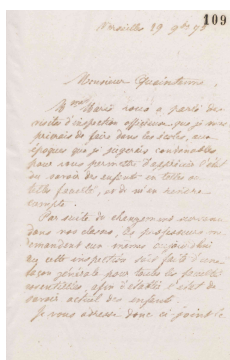 109
Versailles 29 9bre 98
Monsieur Quainterne,
Mme Marie vous a parlé des
visites d'inspection officieuse que je vous
priais de faire dans les écoles, aux
époques que je jugerais convenables
pour vous permettre d'apprécier l'état
du savoir des enfants en telles ou
telles facultés, et de m'en rendre
compte.
Par suite de changements survenus
dans nos classes, les professeurs me
demandent eux-mêmes aujourd'hui
que cette inspection soit faite d'une
façon générale pour toutes les facultés
essentielles, afin d'établir l'état de
savoir actuel des enfants.
Je vous adresse donc ci-joint le